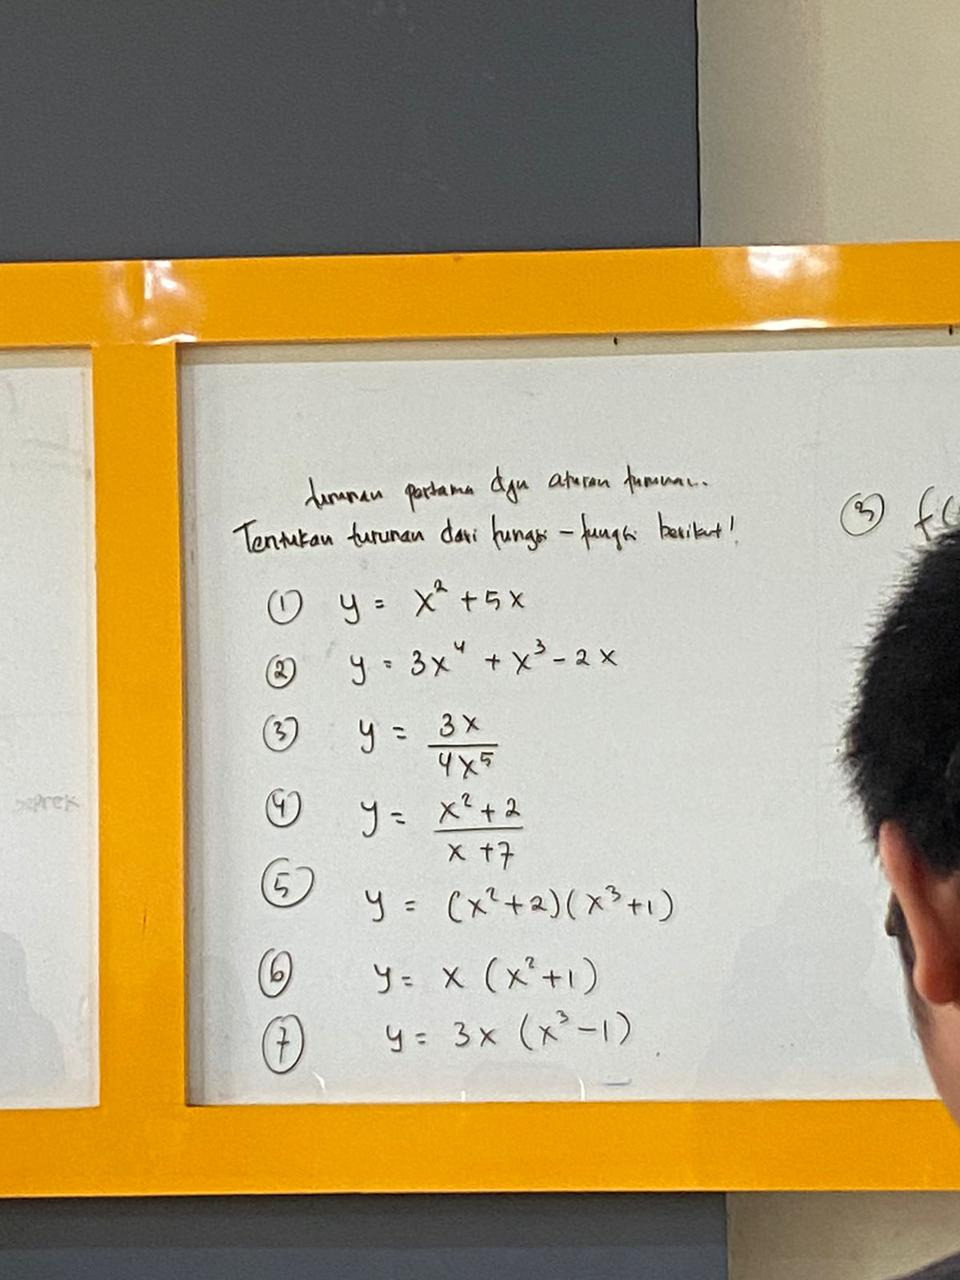 turunan pertama dgn aturan turunan..
Tentukan turunan dari fungsi - fungsi berikut!
① y = x² + 5x
② y = 3x⁴ + x³ - 2x
③ y = 3x / 4x⁵
④ y = x² + 2 / x + 7
⑤ y = (x² + 2)(x³ + 1)
⑥ y = x (x² + 1)
⑦ y = 3x (x³ - 1)
③ f(